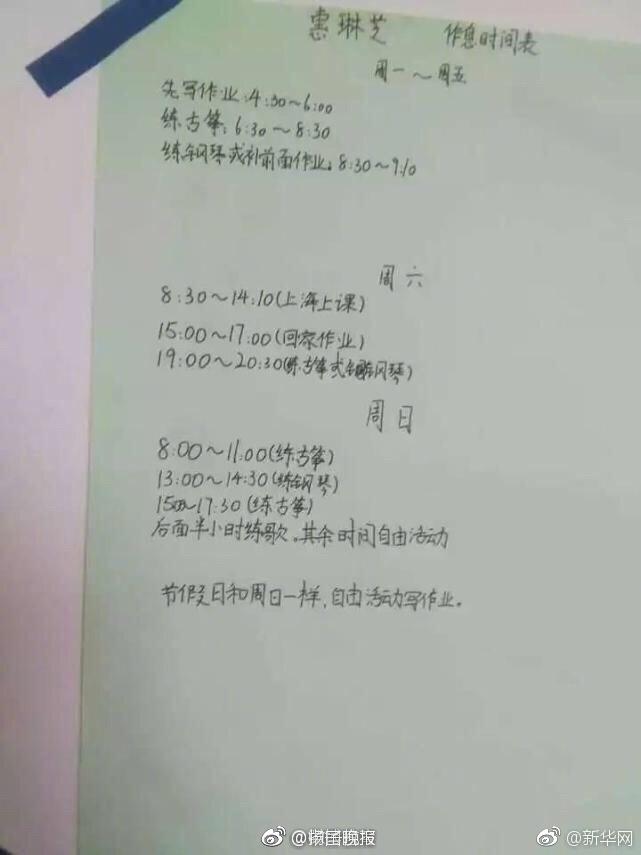 惠琳芝 作息时间表
周一～周五
先写作业:4:30～6:00
练古筝:6:30～8:30
练钢琴或补前面作业:8:30～9:10
周六
8:30～14:10(上海上课)
15:00～17:00(回家作业)
19:00～20:30(练古筝或钢琴)
周日
8:00～11:00(练古筝)
13:00～14:30(练钢琴)
15:00～17:30(练古筝)
后面半小时练歌。其余时间自由活动
节假日和周日一样,自由活动写作业。
@新华网